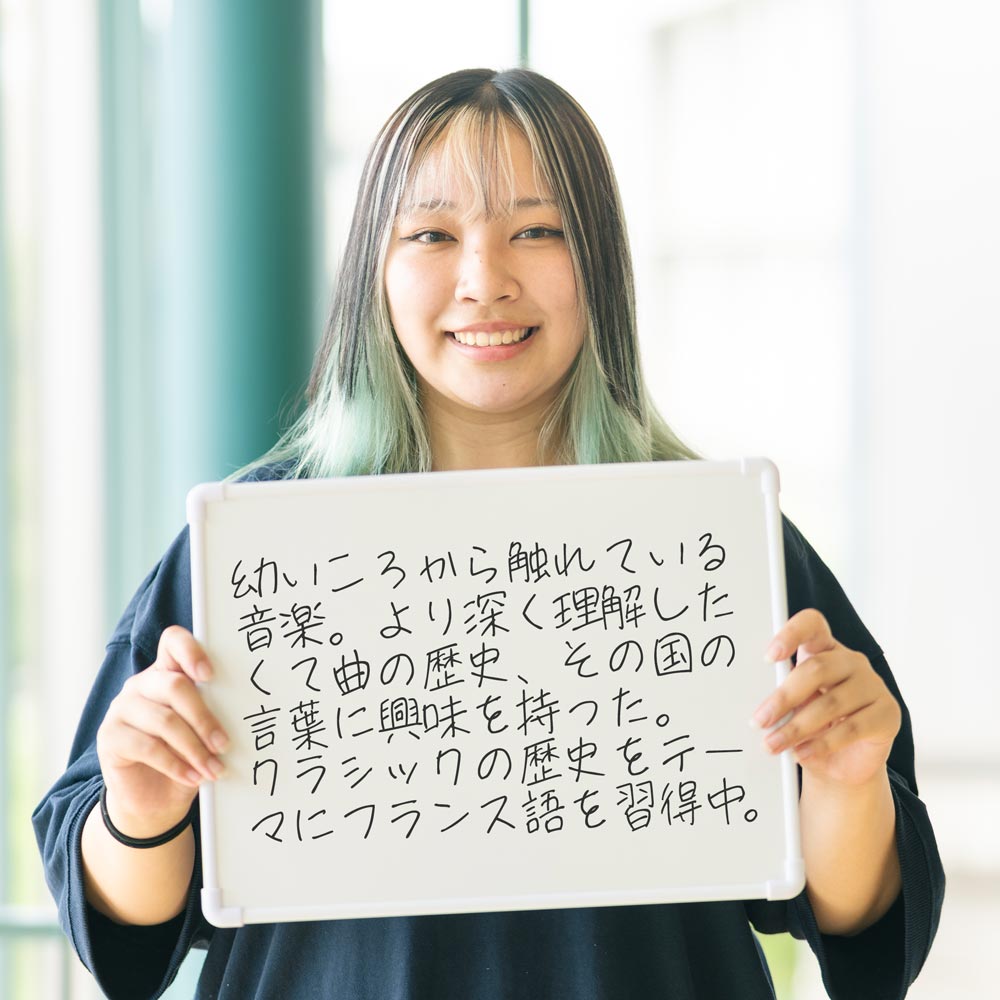 幼いころから触れている
音楽。より深く理解した
くて曲の歴史、その国の
言葉に興味を持った。
クラシックの歴史をテー
マにフランス語を習得中。